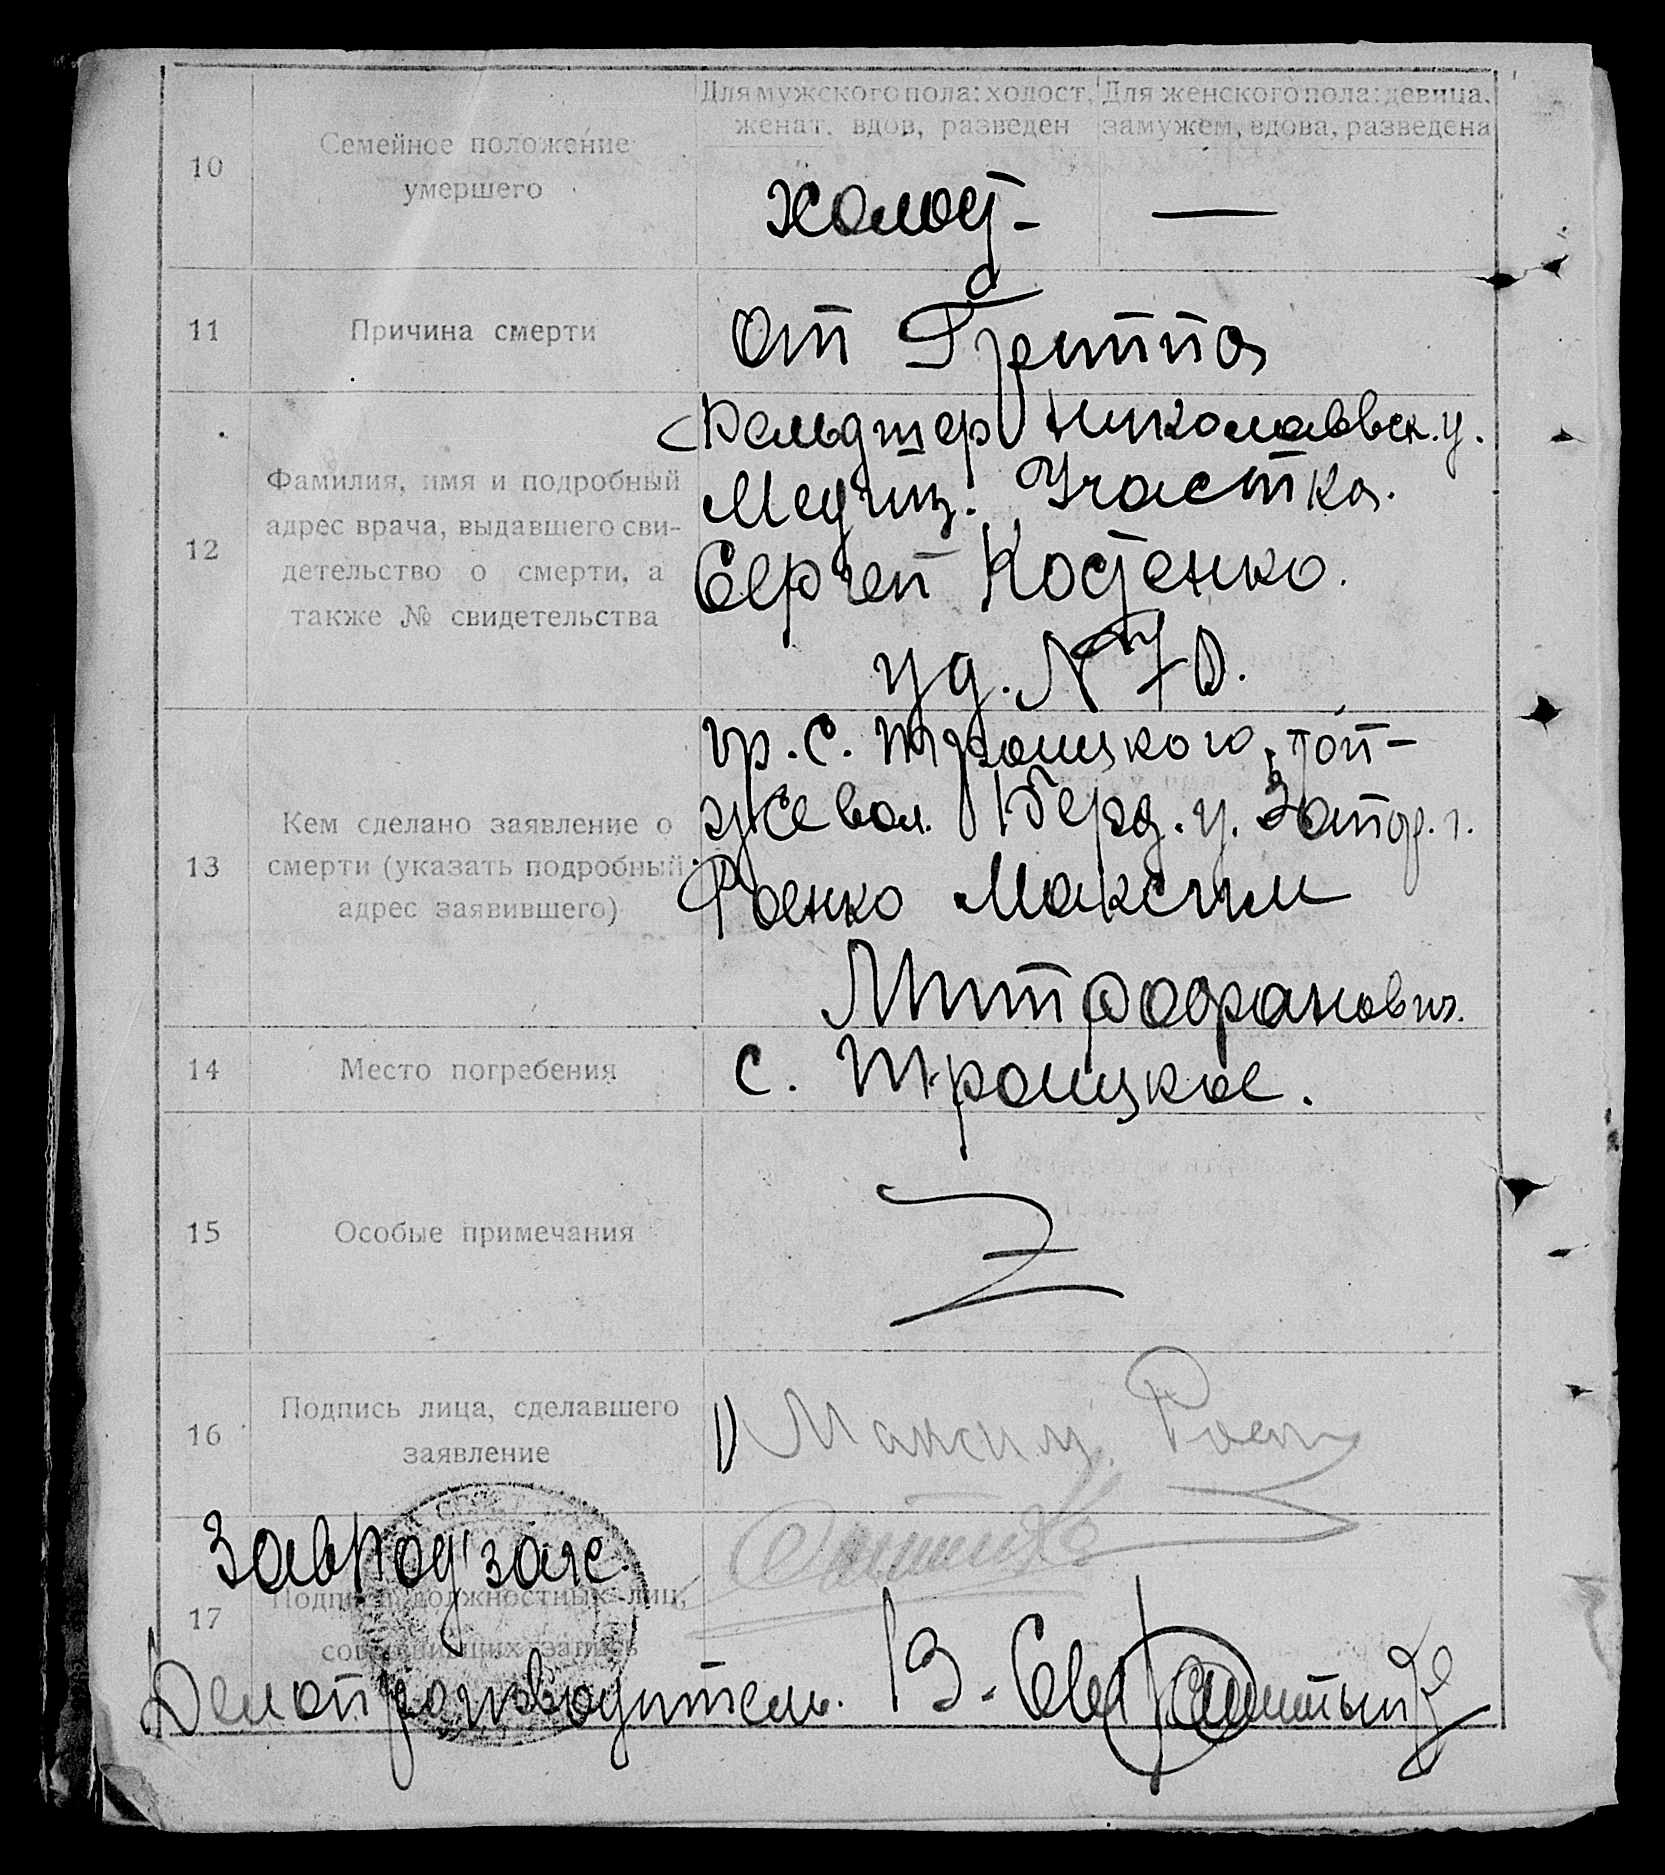 10
Семейное положение
умершего
Для мужского пола: холост,
женат, вдов, разведен
Для женского пола: девица,
замужем, вдова, разведена
холост
—
11
Причина смерти
от Гриппа
12
Фамилия, имя и подробный
адрес врача, выдавшего сви-
детельство о смерти, а
также № свидетельства
Фельдшер Николаевск. у.
Медиц. Участка.
Сергей Костенко.
уд. N 70.
13
Кем сделано заявление о
смерти (указать подробный
адрес заявившего)
гр. с. Троицкого, той-
же вол. Берд. у. Запор. г.
Роенко Максим
Митрофанович.
14
Место погребения
с. Троицкое.
15
Особые примечания
16
Подпись лица, сделавшего
заявление
1) Максим Роен
17
Подписи должностных лиц,
совершивших запись
Завпод'загс.
Делопроизводитель. В.